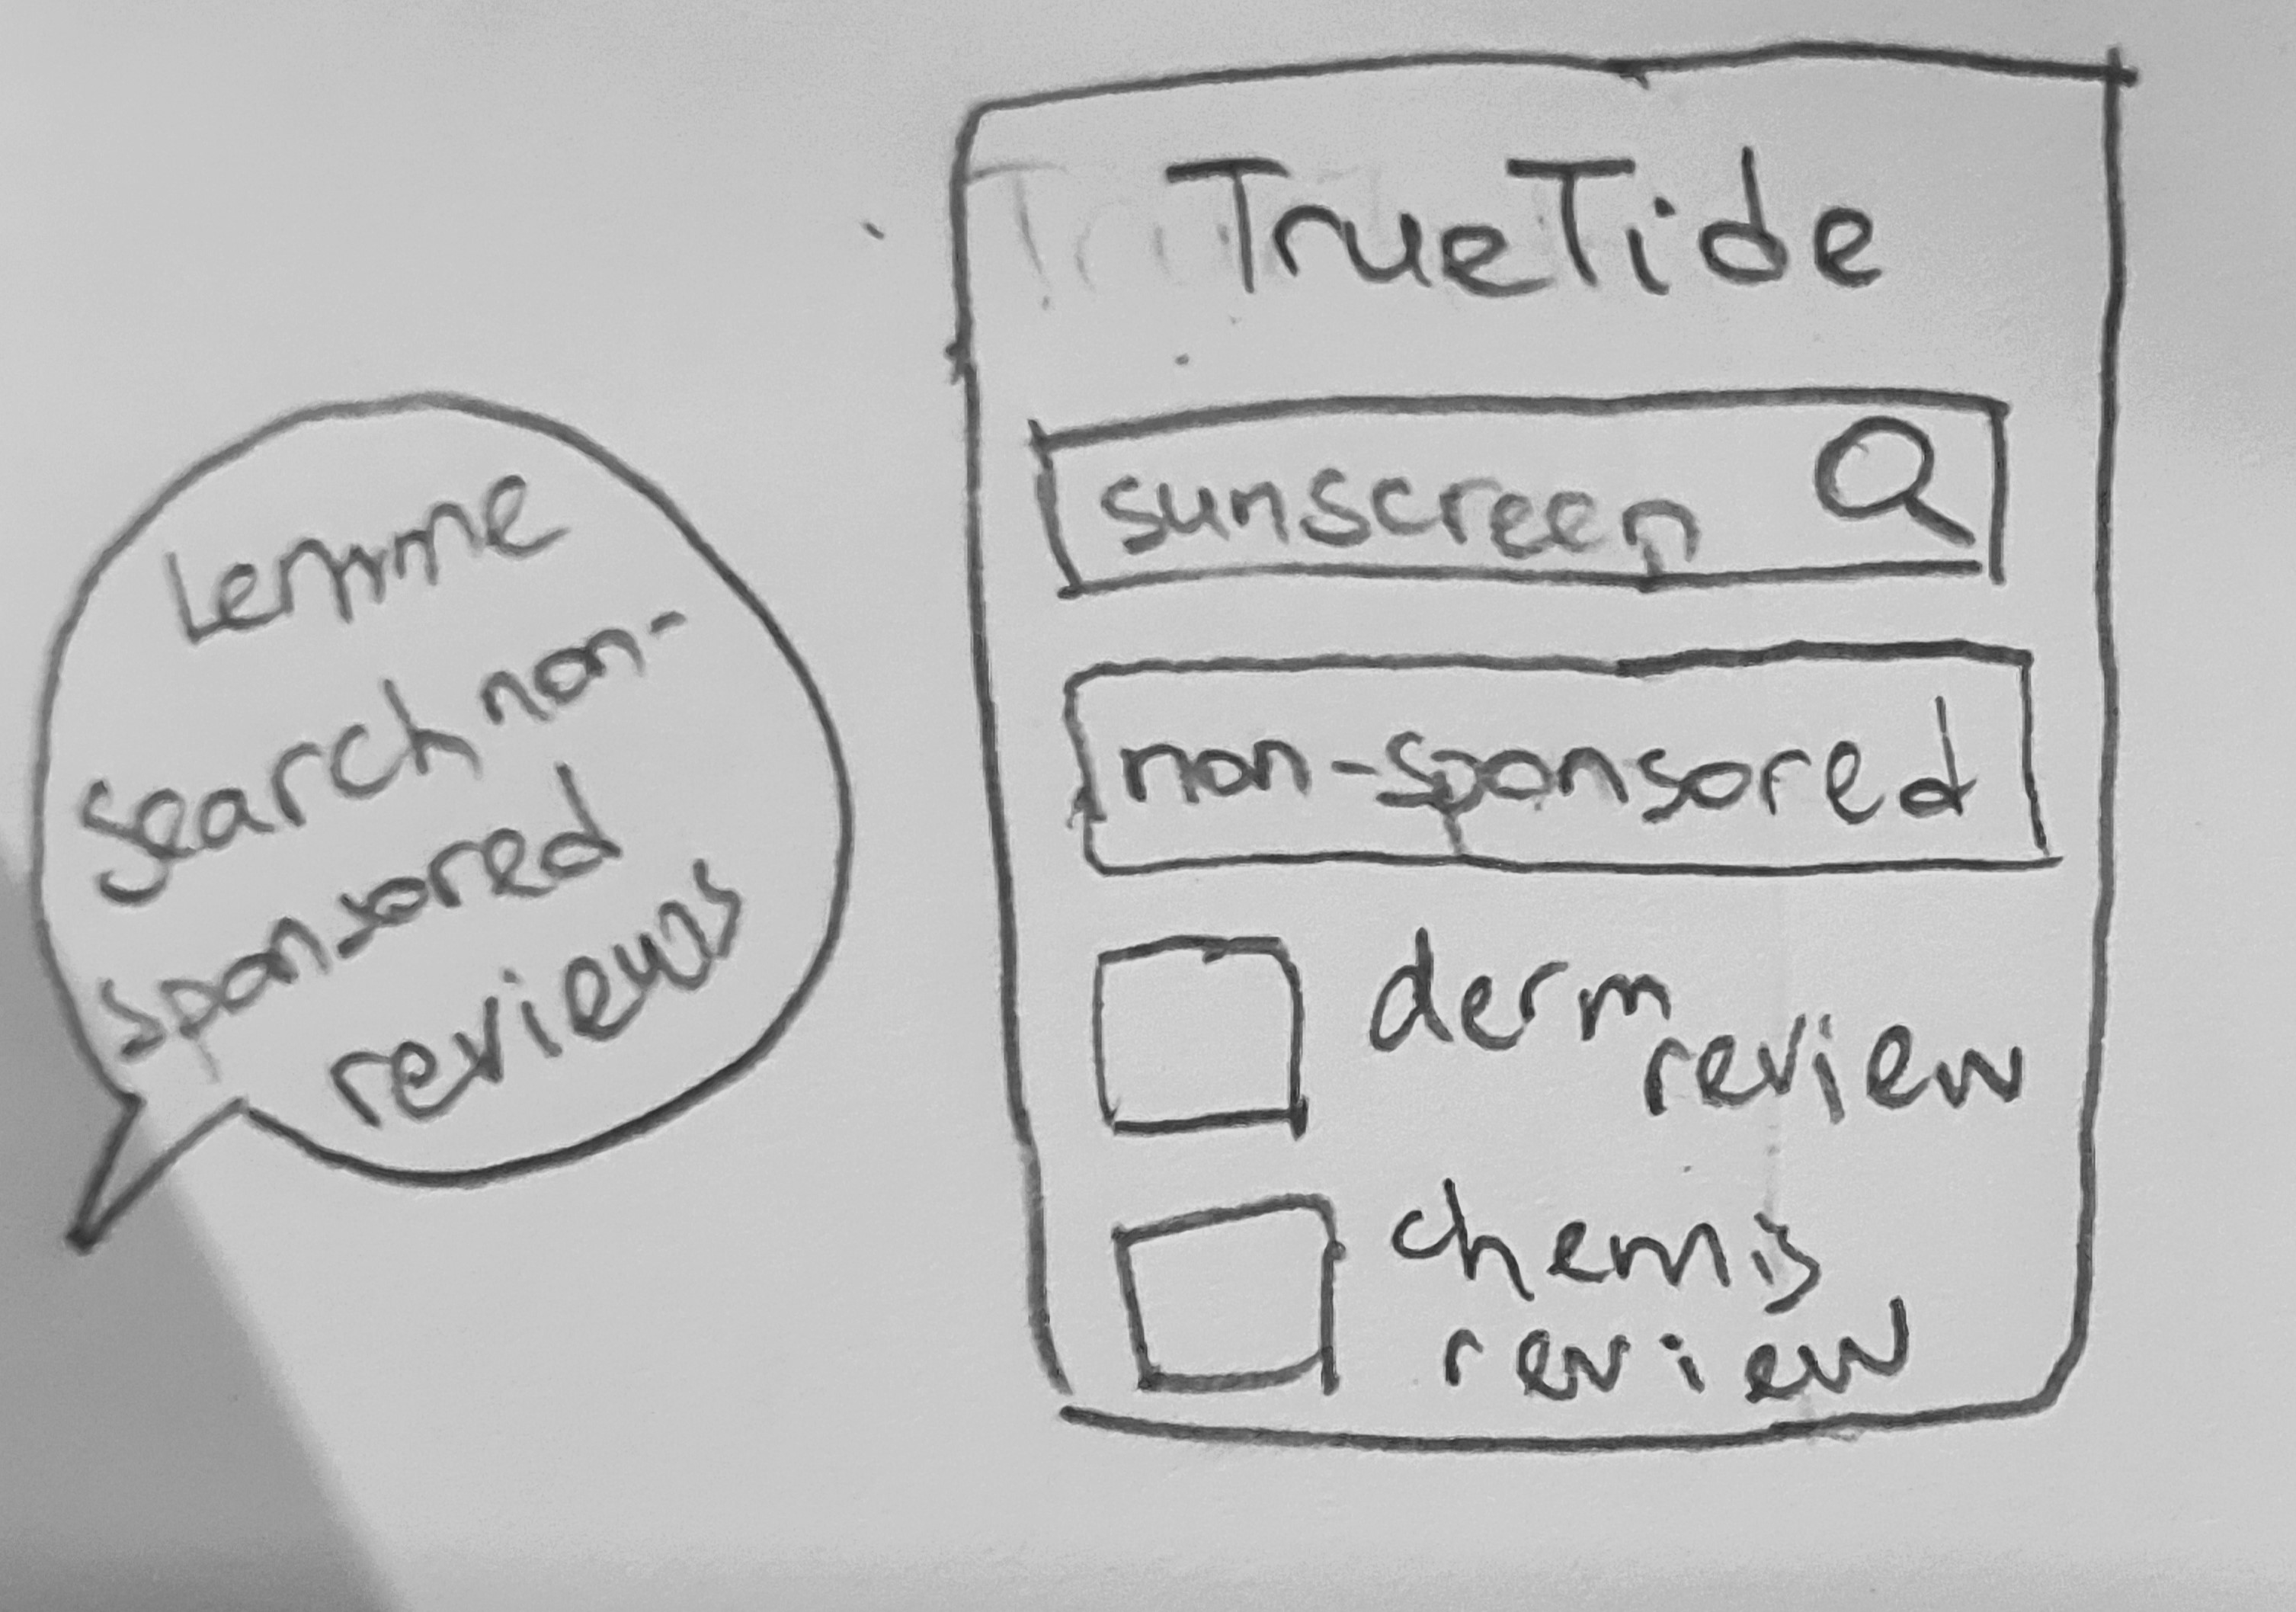 Lemme
search non-
sponsored
reviews
TrueTide
sunscreen
non-sponsored
derm
review
chemis
review